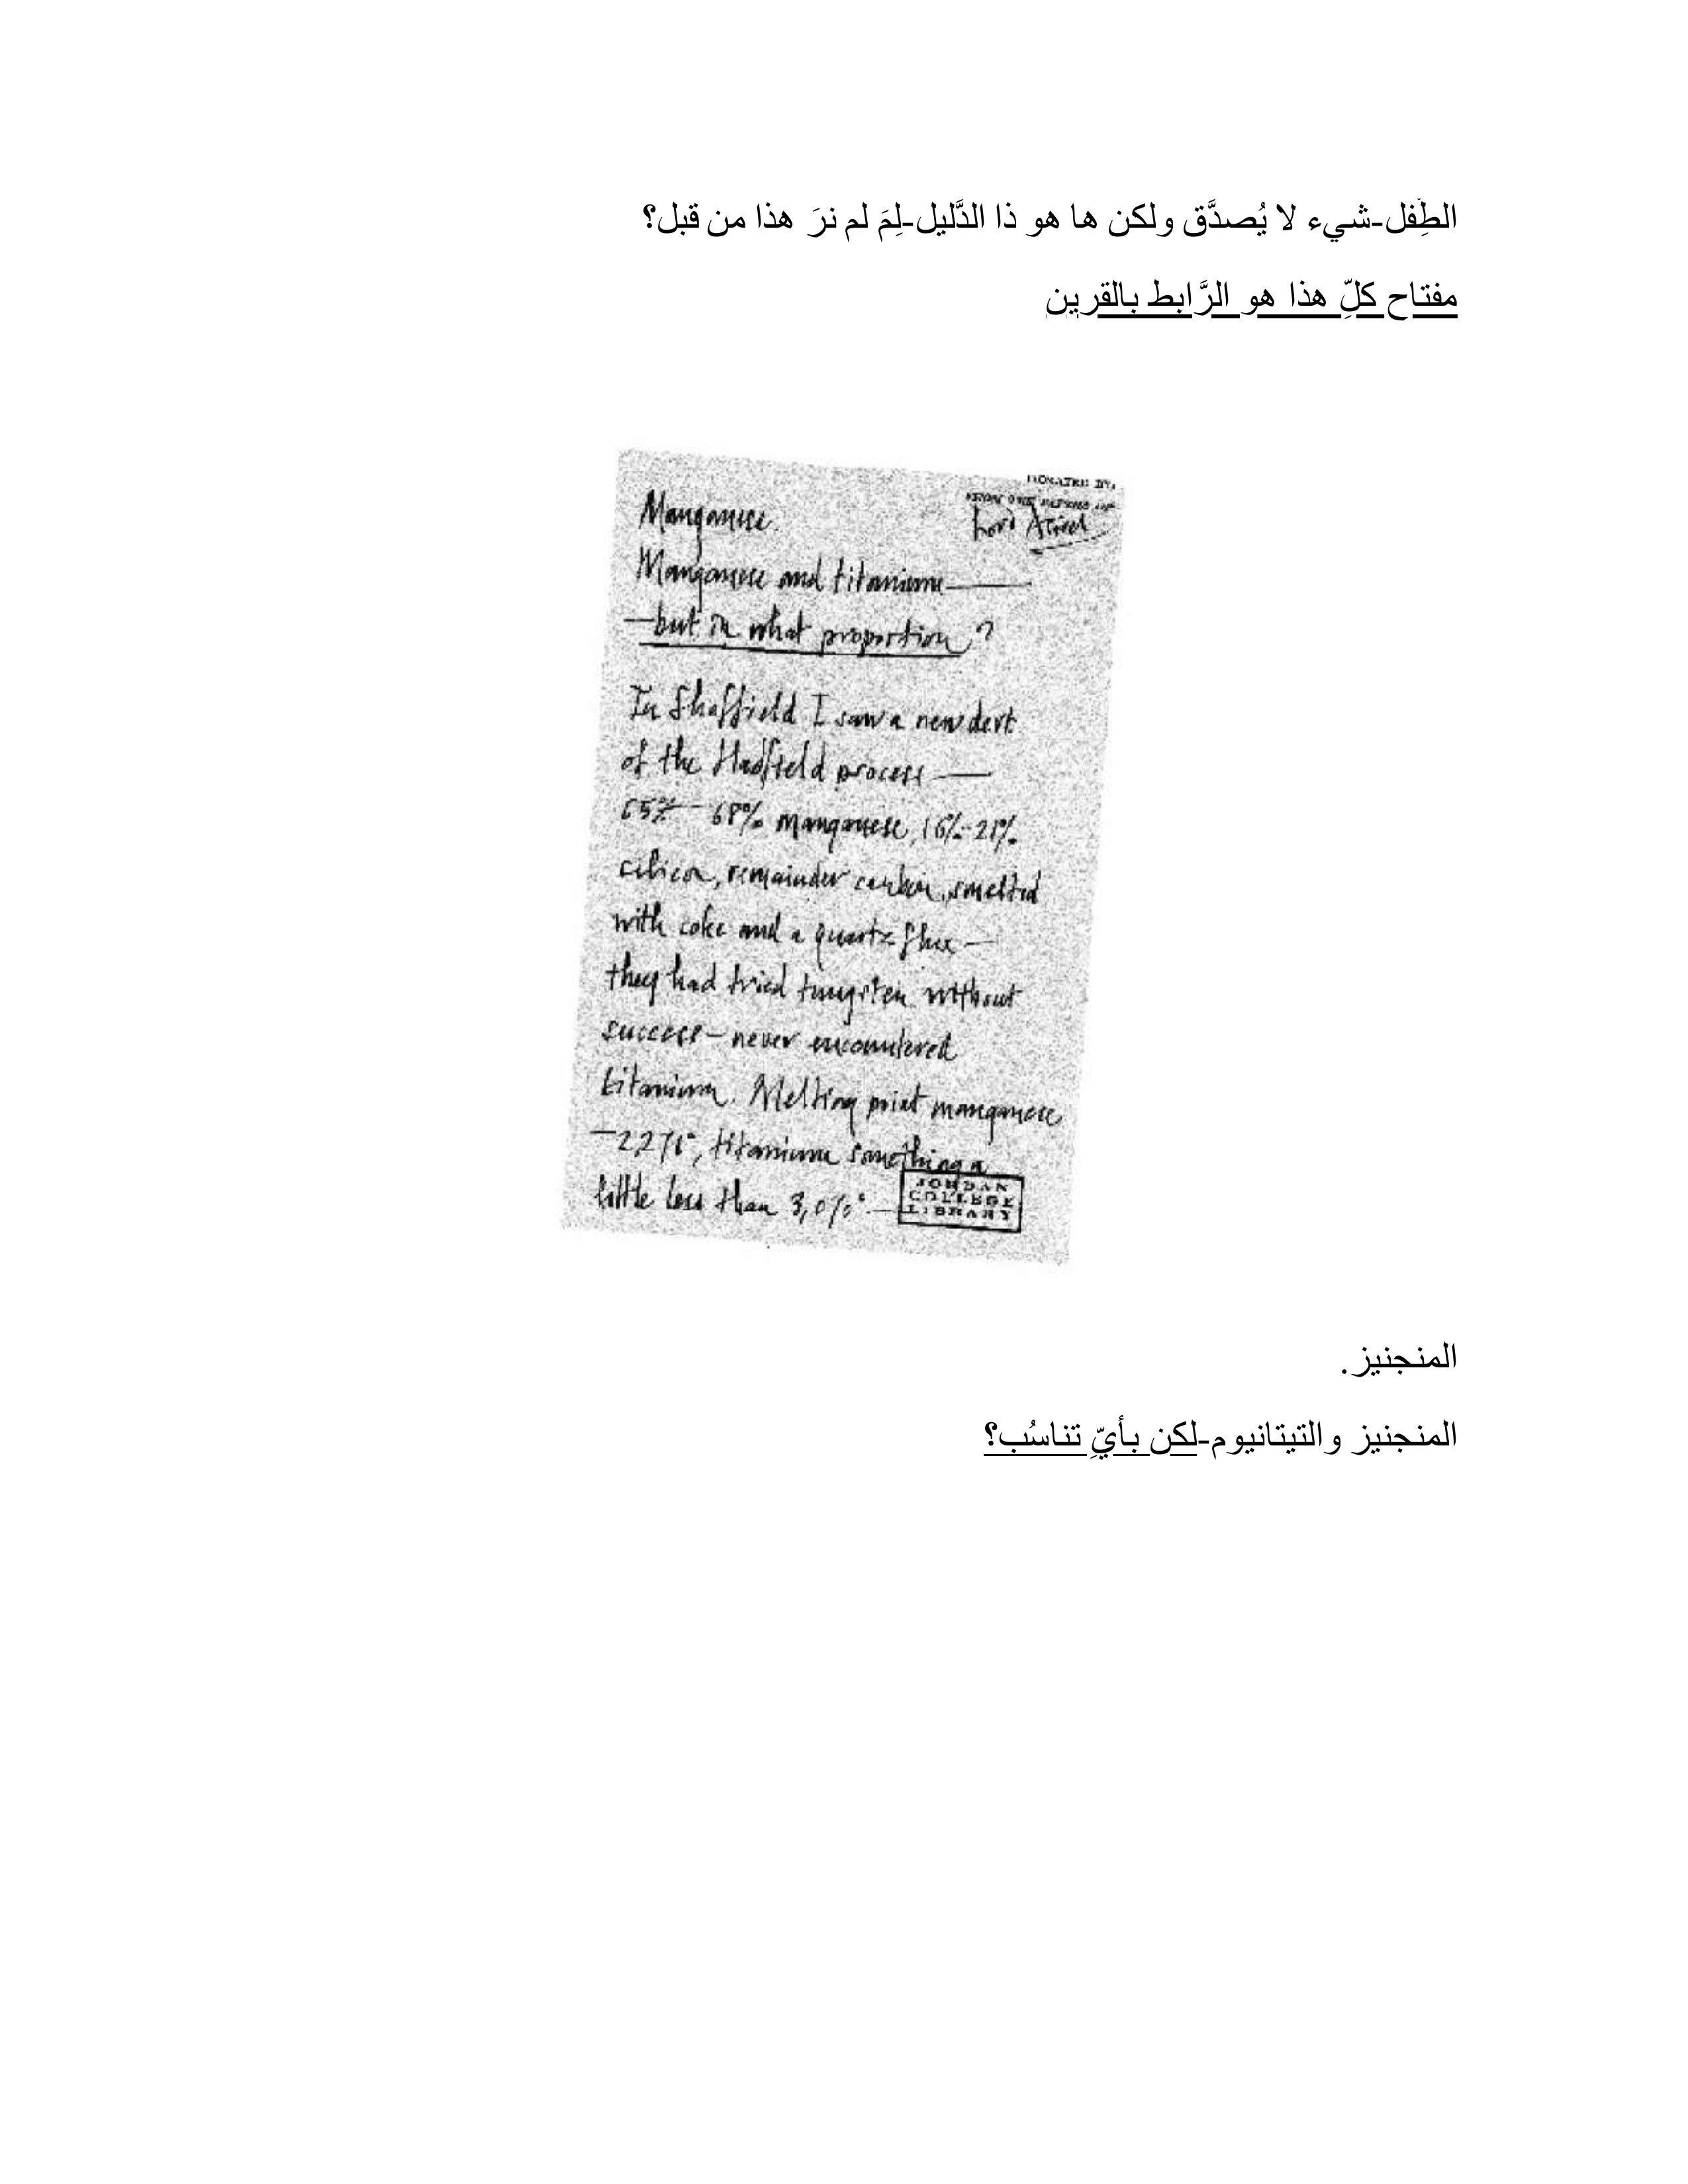 الطِفل-شيء لا يُصدَّق ولكن ها هو ذا الدَّليل-لِمَ لم نرَ هذا من قبل؟
مفتاح كلِّ هذا هو الرَّابط بالقرين
DONATED BY:
Lord Asriel
Manganese.
Manganese and titanium——
—but in what proportion?
In Sheffield I saw a new
of the Hadfield process —
65%—68% manganese, 16%-21%
silicon, remainder carbon, smelted
with coke and a quartz flux —
they had tried tungsten without
success — never encountered
titanium. Melting point manganese
titanium something a
little less than
JORDAN
COLLEGE
LIBRARY
المنجنيز.
المنجنيز والتيتانيوم-لكن بأيِّ تناسُب؟